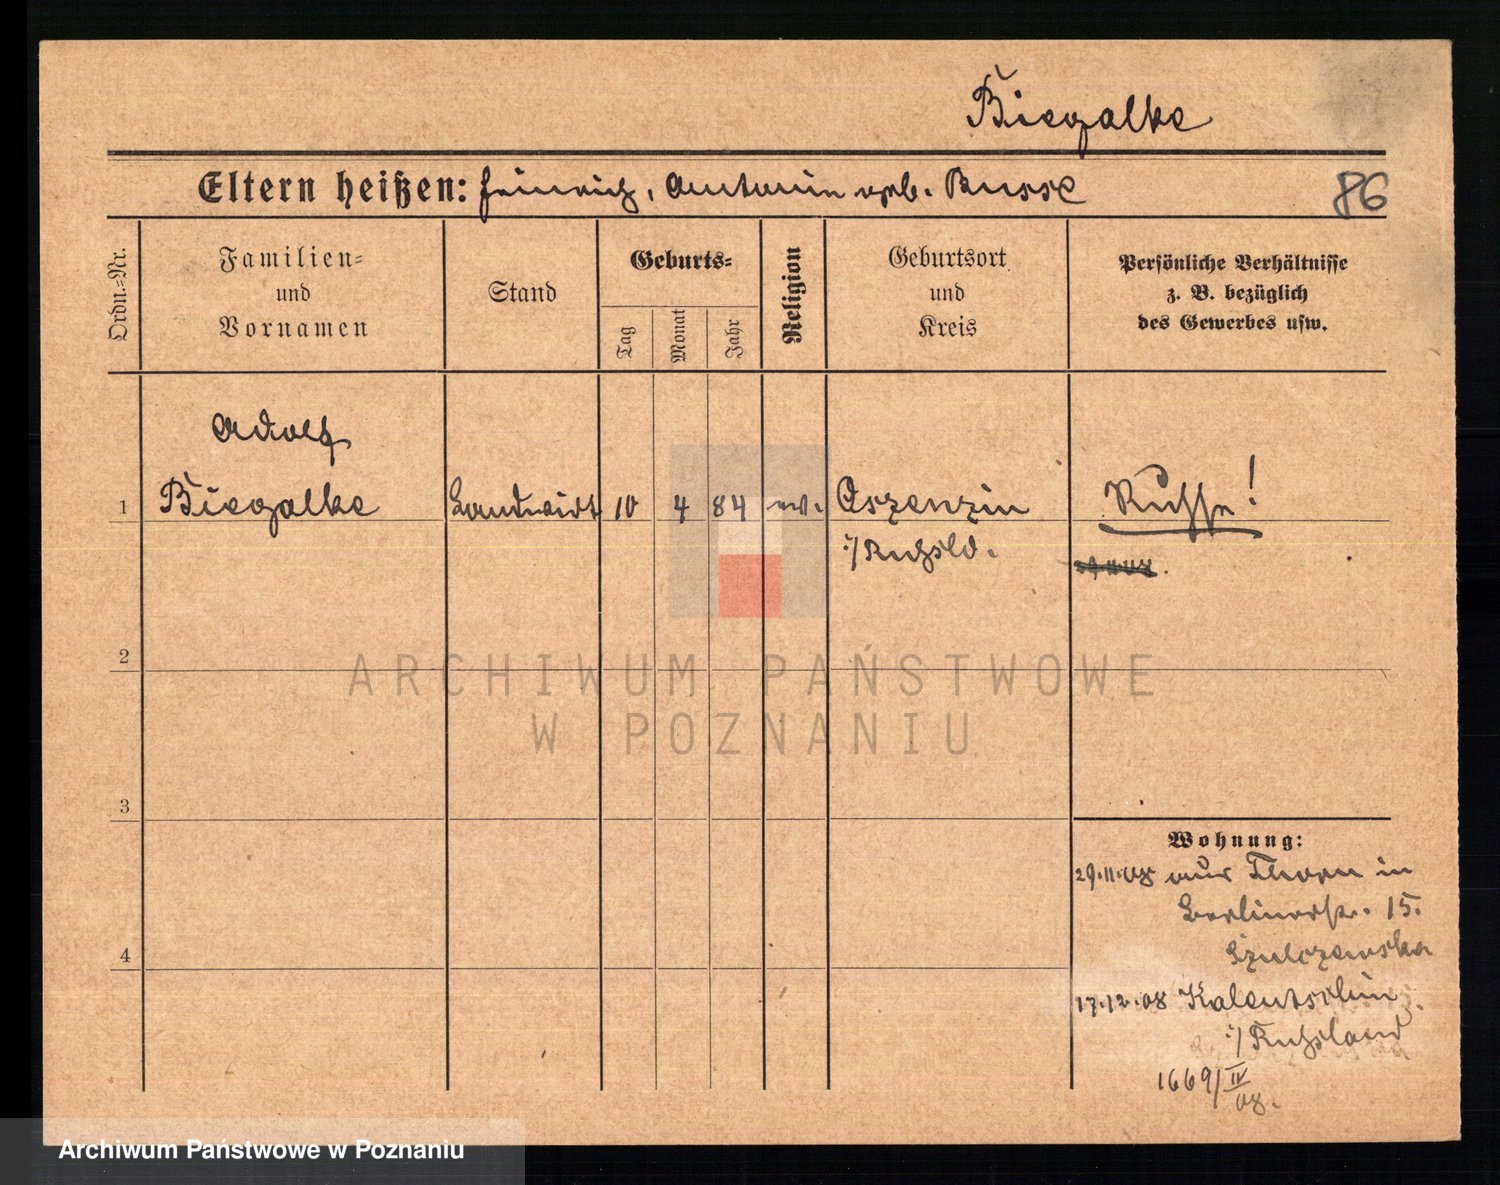 Biegalke
Eltern heißen: Heinrich, Antonin geb. Busse
86
Ordn.=Nr.
Familien=
und
Vornamen
Stand
Geburts=
Tag
Monat
Jahr
Religion
Geburtsort
und
Kreis
Persönliche Verhältnisse
z. B. bezüglich
des Gewerbes usw.
Adolf
1 Biegalke Landwirt 10 4 84 ev.
i/Rußld.
Russe!
2
ARCHIWUM PAŃSTWOWE
W POZNANIU
3
Wohnung:
29.11.08 aus Thorn in
Berlinerstr. 15.
Szulczewska
4
17.12.08 Kalentschin
i/Rußland
1669/IV
08.
Archiwum Państwowe w Poznaniu